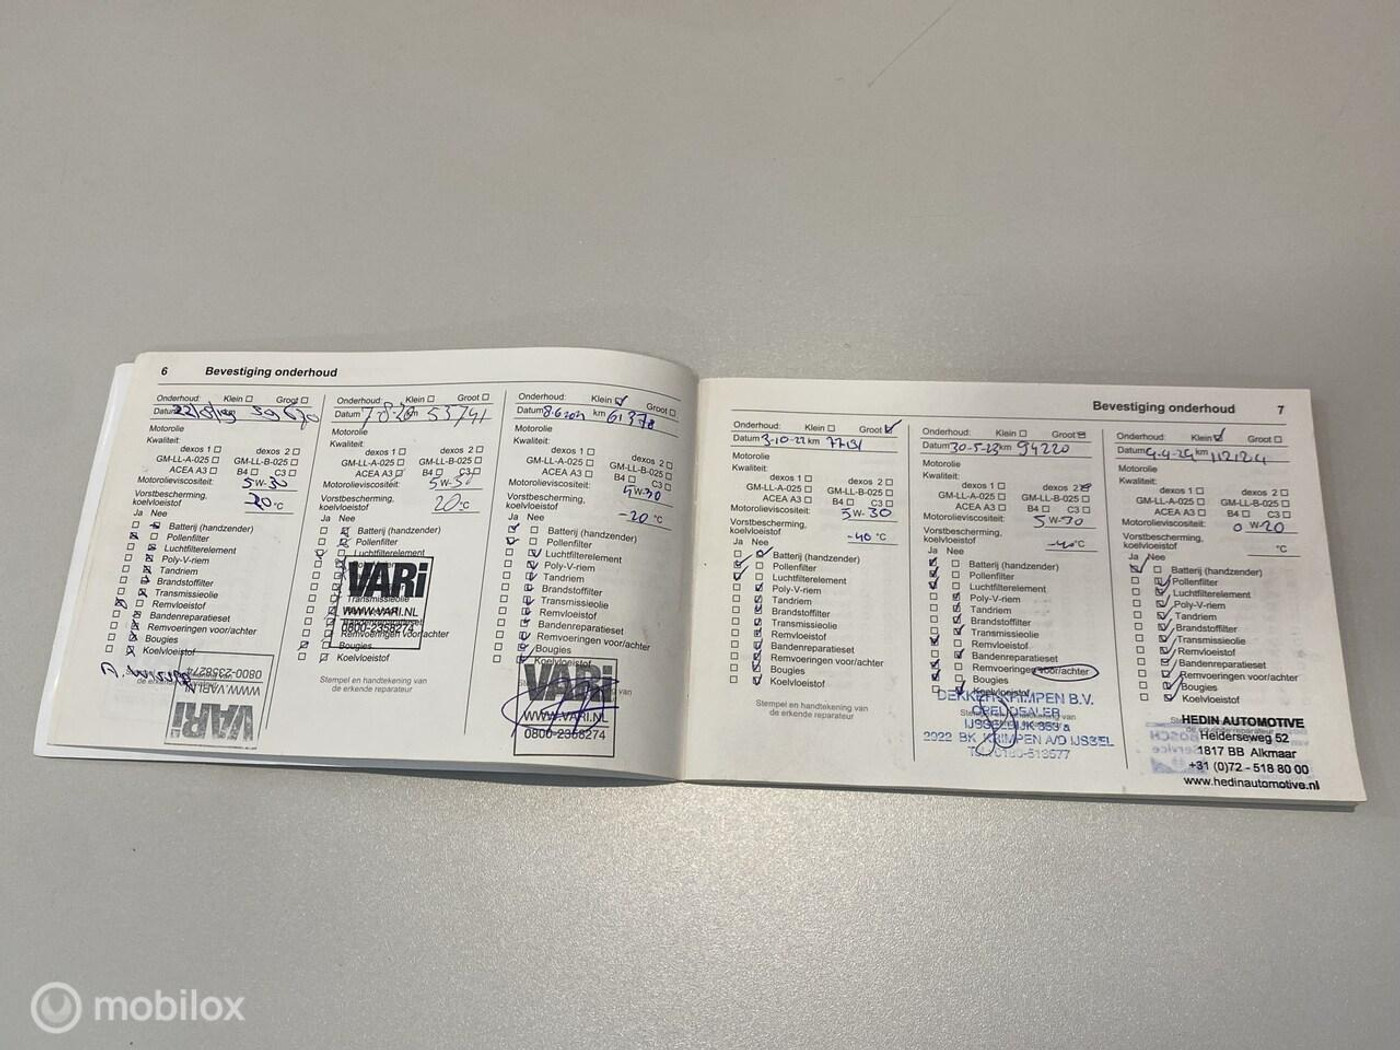 6 Bevestiging onderhoud
Onderhoud: Klein Groot
Datum km
Motorolie
Kwaliteit:
dexos 1 dexos 2
GM-LL-A-025 GM-LL-B-025
ACEA A3 B4 C3
Motorolieviscositeit: 5W-30
Vorstbescherming,
koelvloeistof 20 °C
Ja Nee
Batterij (handzender)
Pollenfilter
Luchtfilterelement
Poly-V-riem
Tandriem
Brandstoffilter
Transmissieolie
Remvloeistof
Bandenreparatieset
Remvoeringen voor/achter
Bougies
Koelvloeistof
VARi
WWW.VARI.NL
0800-2358274
Onderhoud: Klein Groot
Datum 7-8-20 km 53741
Motorolie
Kwaliteit:
dexos 1 dexos 2
GM-LL-A-025 GM-LL-B-025
ACEA A3 B4 C3
Motorolieviscositeit: 5W-30
Vorstbescherming,
koelvloeistof 20 °C
Ja Nee
Batterij (handzender)
Pollenfilter
Luchtfilterelement
VARi
Transmissieolie
WWW.VARI.NL
Bandenreparatieset
0800-2358274
Remvoeringen voor/achter
Bougies
Koelvloeistof
Stempel en handtekening van
de erkende reparateur
Onderhoud: Klein Groot
Datum km 61378
Motorolie
Kwaliteit:
dexos 1 dexos 2
GM-LL-A-025 GM-LL-B-025
ACEA A3 B4 C3
Motorolieviscositeit: W-30
Vorstbescherming,
koelvloeistof -20 °C
Ja Nee
Batterij (handzender)
Pollenfilter
Luchtfilterelement
Poly-V-riem
Tandriem
Brandstoffilter
Transmissieolie
Remvloeistof
Bandenreparatieset
Remvoeringen voor/achter
Bougies
Koelvloeistof
VARi
WWW.VARI.NL
0800-2358274
Bevestiging onderhoud 7
Onderhoud: Klein Groot
Datum 3-10-22 km
Motorolie
Kwaliteit:
dexos 1 dexos 2
GM-LL-A-025 GM-LL-B-025
ACEA A3 B4 C3
Motorolieviscositeit: 5W-30
Vorstbescherming,
koelvloeistof -40 °C
Ja Nee
Batterij (handzender)
Pollenfilter
Luchtfilterelement
Poly-V-riem
Tandriem
Brandstoffilter
Transmissieolie
Remvloeistof
Bandenreparatieset
Remvoeringen voor/achter
Bougies
Koelvloeistof
Stempel en handtekening van
de erkende reparateur
Onderhoud: Klein Groot
Datum 30-5-23 km 94220
Motorolie
Kwaliteit:
dexos 1 dexos 2
GM-LL-A-025 GM-LL-B-025
ACEA A3 B4 C3
Motorolieviscositeit: 5W-30
Vorstbescherming,
koelvloeistof -40 °C
Ja Nee
Batterij (handzender)
Pollenfilter
Luchtfilterelement
Poly-V-riem
Tandriem
Brandstoffilter
Transmissieolie
Remvloeistof
Bandenreparatieset
Remvoeringen voor/achter
Bougies
Koelvloeistof
DEKKER KRIMPEN B.V.
OPELDEALER
IJSSELDIJK 353 a
2922 BK KRIMPEN A/D IJSSEL
Onderhoud: Klein Groot
Datum 4-4-24 km 112124
Motorolie
Kwaliteit:
dexos 1 dexos 2
GM-LL-A-025 GM-LL-B-025
ACEA A3 B4 C3
Motorolieviscositeit: 0W-20
Vorstbescherming,
koelvloeistof °C
Ja Nee
Batterij (handzender)
Pollenfilter
Luchtfilterelement
Poly-V-riem
Tandriem
Brandstoffilter
Transmissieolie
Remvloeistof
Bandenreparatieset
Remvoeringen voor/achter
Bougies
Koelvloeistof
HEDIN AUTOMOTIVE
Helderseweg 52
1817 BB Alkmaar
+31 (0)72 - 518 80 00
www.hedinautomotive.nl
mobilox